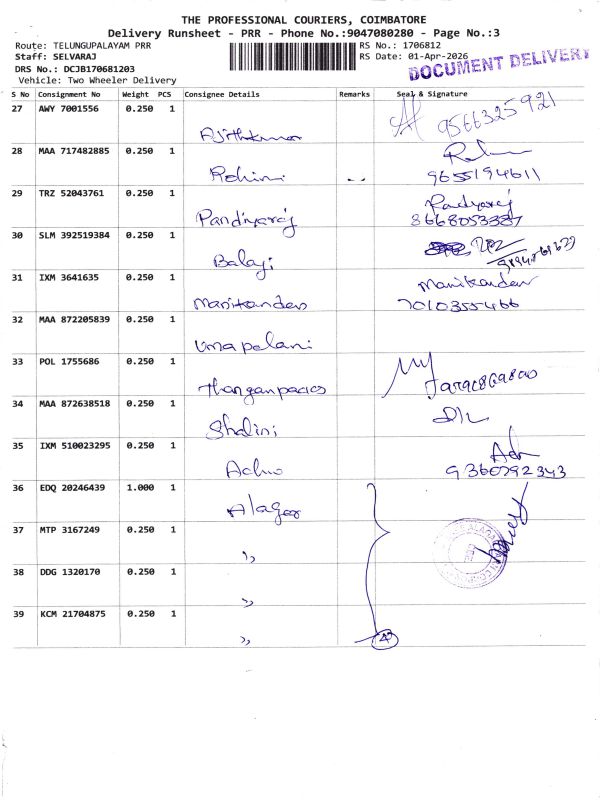 THE PROFESSIONAL COURIERS, COIMBATORE
Delivery Runsheet - PRR - Phone No.:9047080280 - Page No.:3
Route: TELUNGUPALAYAM PRR
RS No.: 1706812
Staff: SELVARAJ
RS Date: 01-Apr-2026
DRS No.: DCJB170681203
Vehicle: Two Wheeler Delivery
DOCUMENT DELIVERY
S No Consignment No Weight PCS Consignee Details Remarks Seal & Signature
27 AWY 7001556 0.250 1
Ajithkumar 9566325921
28 MAA 717482885 0.250 1
Rohini 9655194611
29 TRZ 52043761 0.250 1 Pandiyaraj
Pandiyaraj 8668053387
30 SLM 392519384 0.250 1
Balaji
31 IXM 3641635 0.250 1 Manikandan
Manikandan 7010355466
32 MAA 872205839 0.250 1
Umapalani
33 POL 1755686 0.250 1
34 MAA 872638518 0.250 1
Shalini
35 IXM 510023295 0.250 1
9360792343
36 EDQ 20246439 1.000 1
Alagar
37 MTP 3167249 0.250 1
,,
38 DDG 1320170 0.250 1
,,
39 KCM 21704875 0.250 1
,, 4